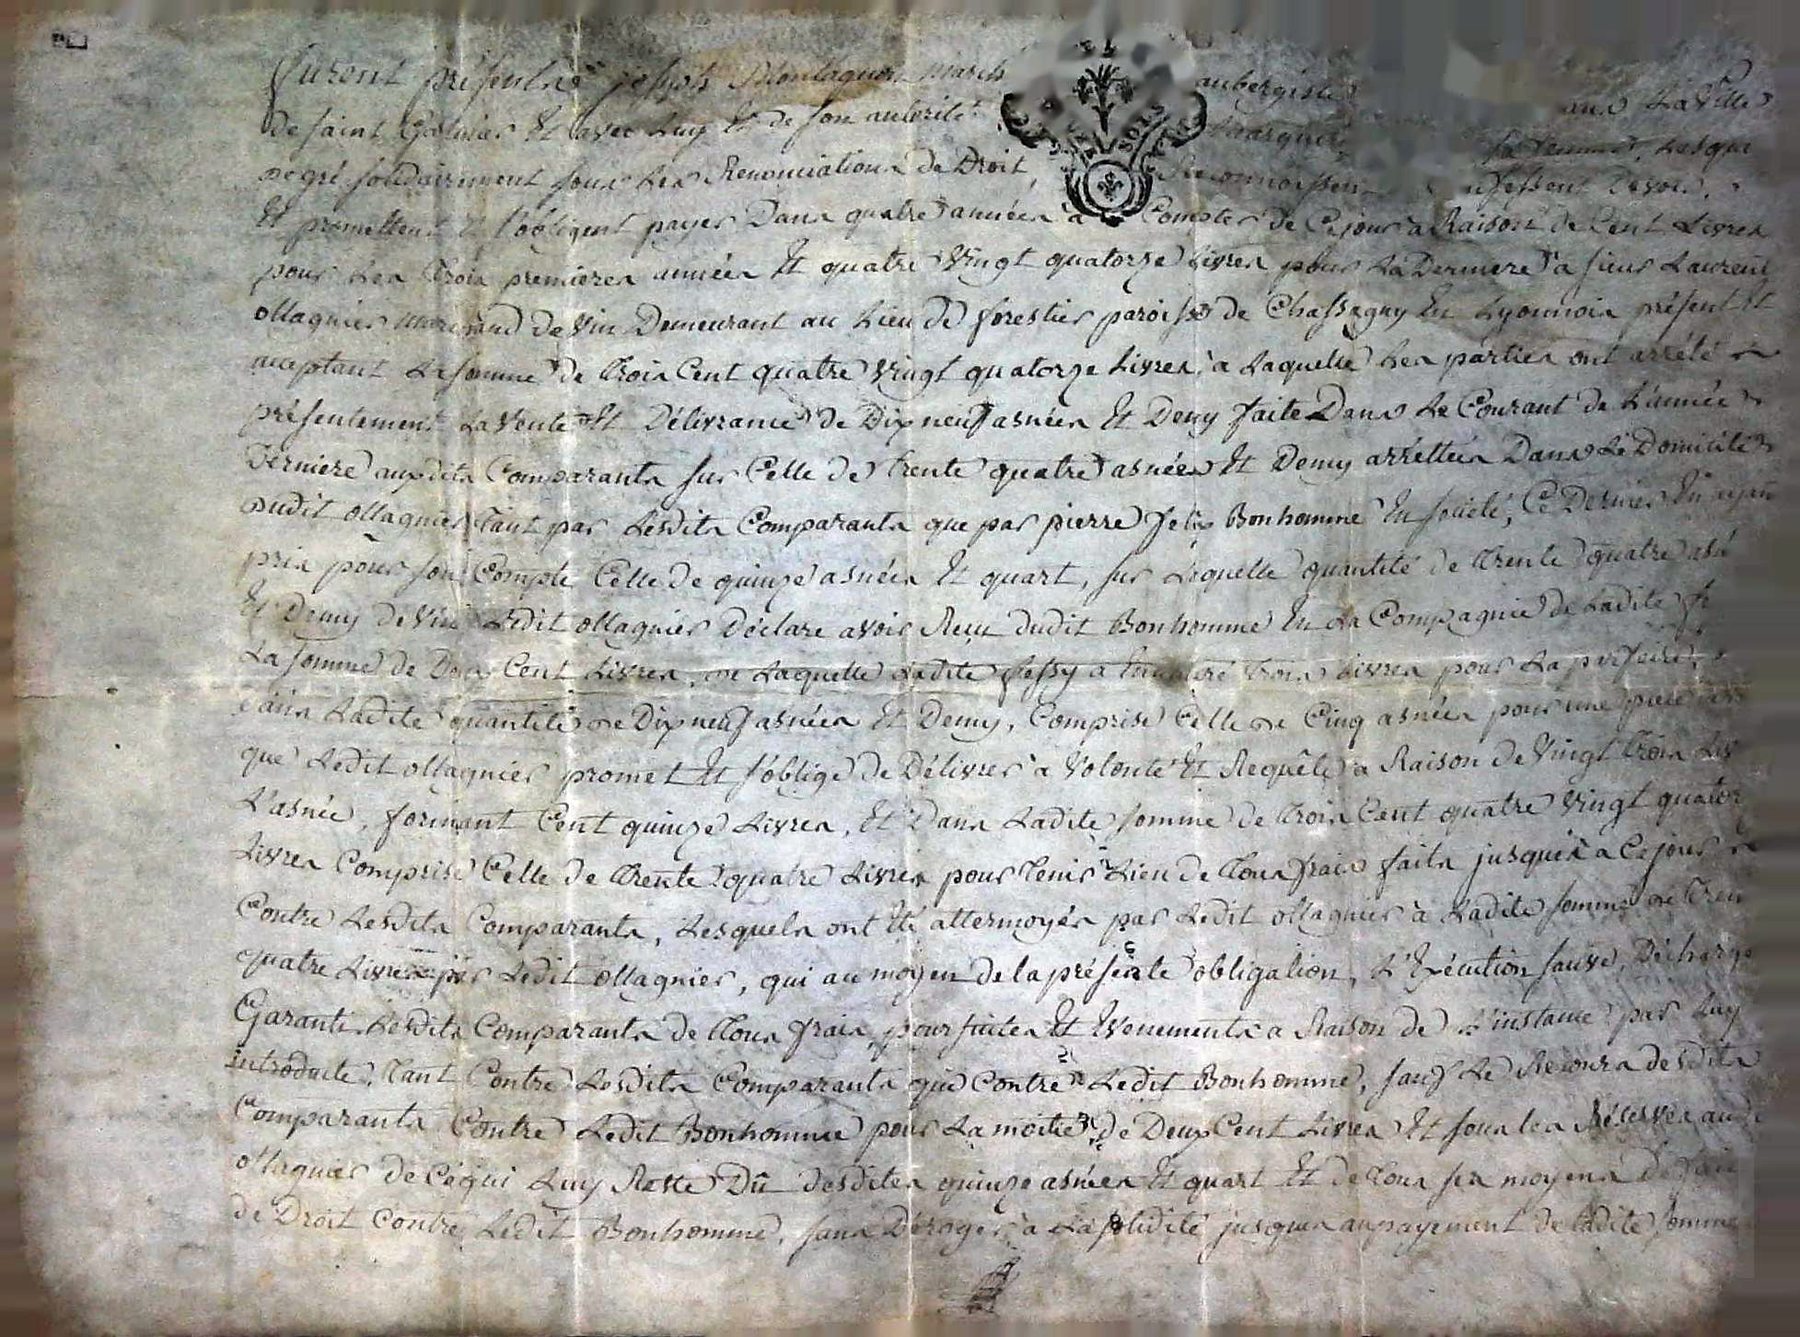 furent présents joseph Montagnon march aubergiste dans La Ville
de saint Galmier Et avec Luy Et de son autorité sa femme, Lesque
de gré solidairement sous Les Renonciations de Droit, Reconnoissent confessent Devoir,
Et promettent Et s'obligent payer Dans quatre années à Compter de Cejour à Raison de Cent Livres
pour Les Trois premieres années Et quatre Vingt quatorze Livres pour La Derniere à sieur Laurent
ollagnier Marchand de Vin Demeurant au Lieu de forestier paroisse de Chassagny En Lyonnois présent Et
acceptant La somme de Trois Cent quatre Vingt quatorze Livres, à Laquelle Les parties ont arrété
présentement La Vente Et Délivrance de Dix neuf asnées Et Demy faite Dans Le Courant de L'année
Derniere auxdits Comparants sur Celle de Trente quatre asnées Et Demy arrettées Dans Le Domicile
dudit ollagnier Tant par Lesdits Comparants que par pierre felix Bonhomme En société, Ce Dernier En ayant
pris pour son Compte Celle de quinze asnées Et quart, sur Laquelle quantité de Trente quatre asn
Et Demy de Vin Ledit ollagnier Déclare avoir Reçu dudit Bonhomme En La Compagnie de Ladite fe
La somme de Deux Cent Livres, de Laquelle Ladite fessy a Trois Livres pour La
dans Ladite quantité de Dix neuf asnées Et Demy, Comprise Celle de Cinq asnées pour une piece
que Ledit ollagnier promet Et s'oblige de Délivrer à Volonté Et Requête à Raison de Vingt Trois Liv
L'asnée, formant Cent quinze Livres, Et Dans Ladite somme de Trois Cent quatre Vingt quator
Livres Comprise Celle de Trente quatre Livres pour Tenir Lieu de Tous frais faits jusques à Cejour
Contre Lesdits Comparants, Lesquels ont Eté attermoyés par Ledit ollagnier à Ladite somme de Tren
quatre Livres par Ledit ollagnier, qui au moyen de la présente obligation, L'Exécution sauve, Décharge
Garanti Lesdits Comparants de Tous frais, poursuites Et Evenements a Raison de L'instance par Luy
introduite, Tant Contre Lesdits Comparants que Contre Ledit Bonhomme, sauf Le Recours desdits
Comparants Contre Ledit Bonhomme pour La moitié de Deux Cent Livres Et sous les Réserves audi
ollagnier de Céqui Luy Reste Dû desdites quinze asnées Et quart Et de Tous ses moyens De fait
de Droit Contre Ledit Bonhomme, sans Déroger à La solidité jusques au payement de ladite somme